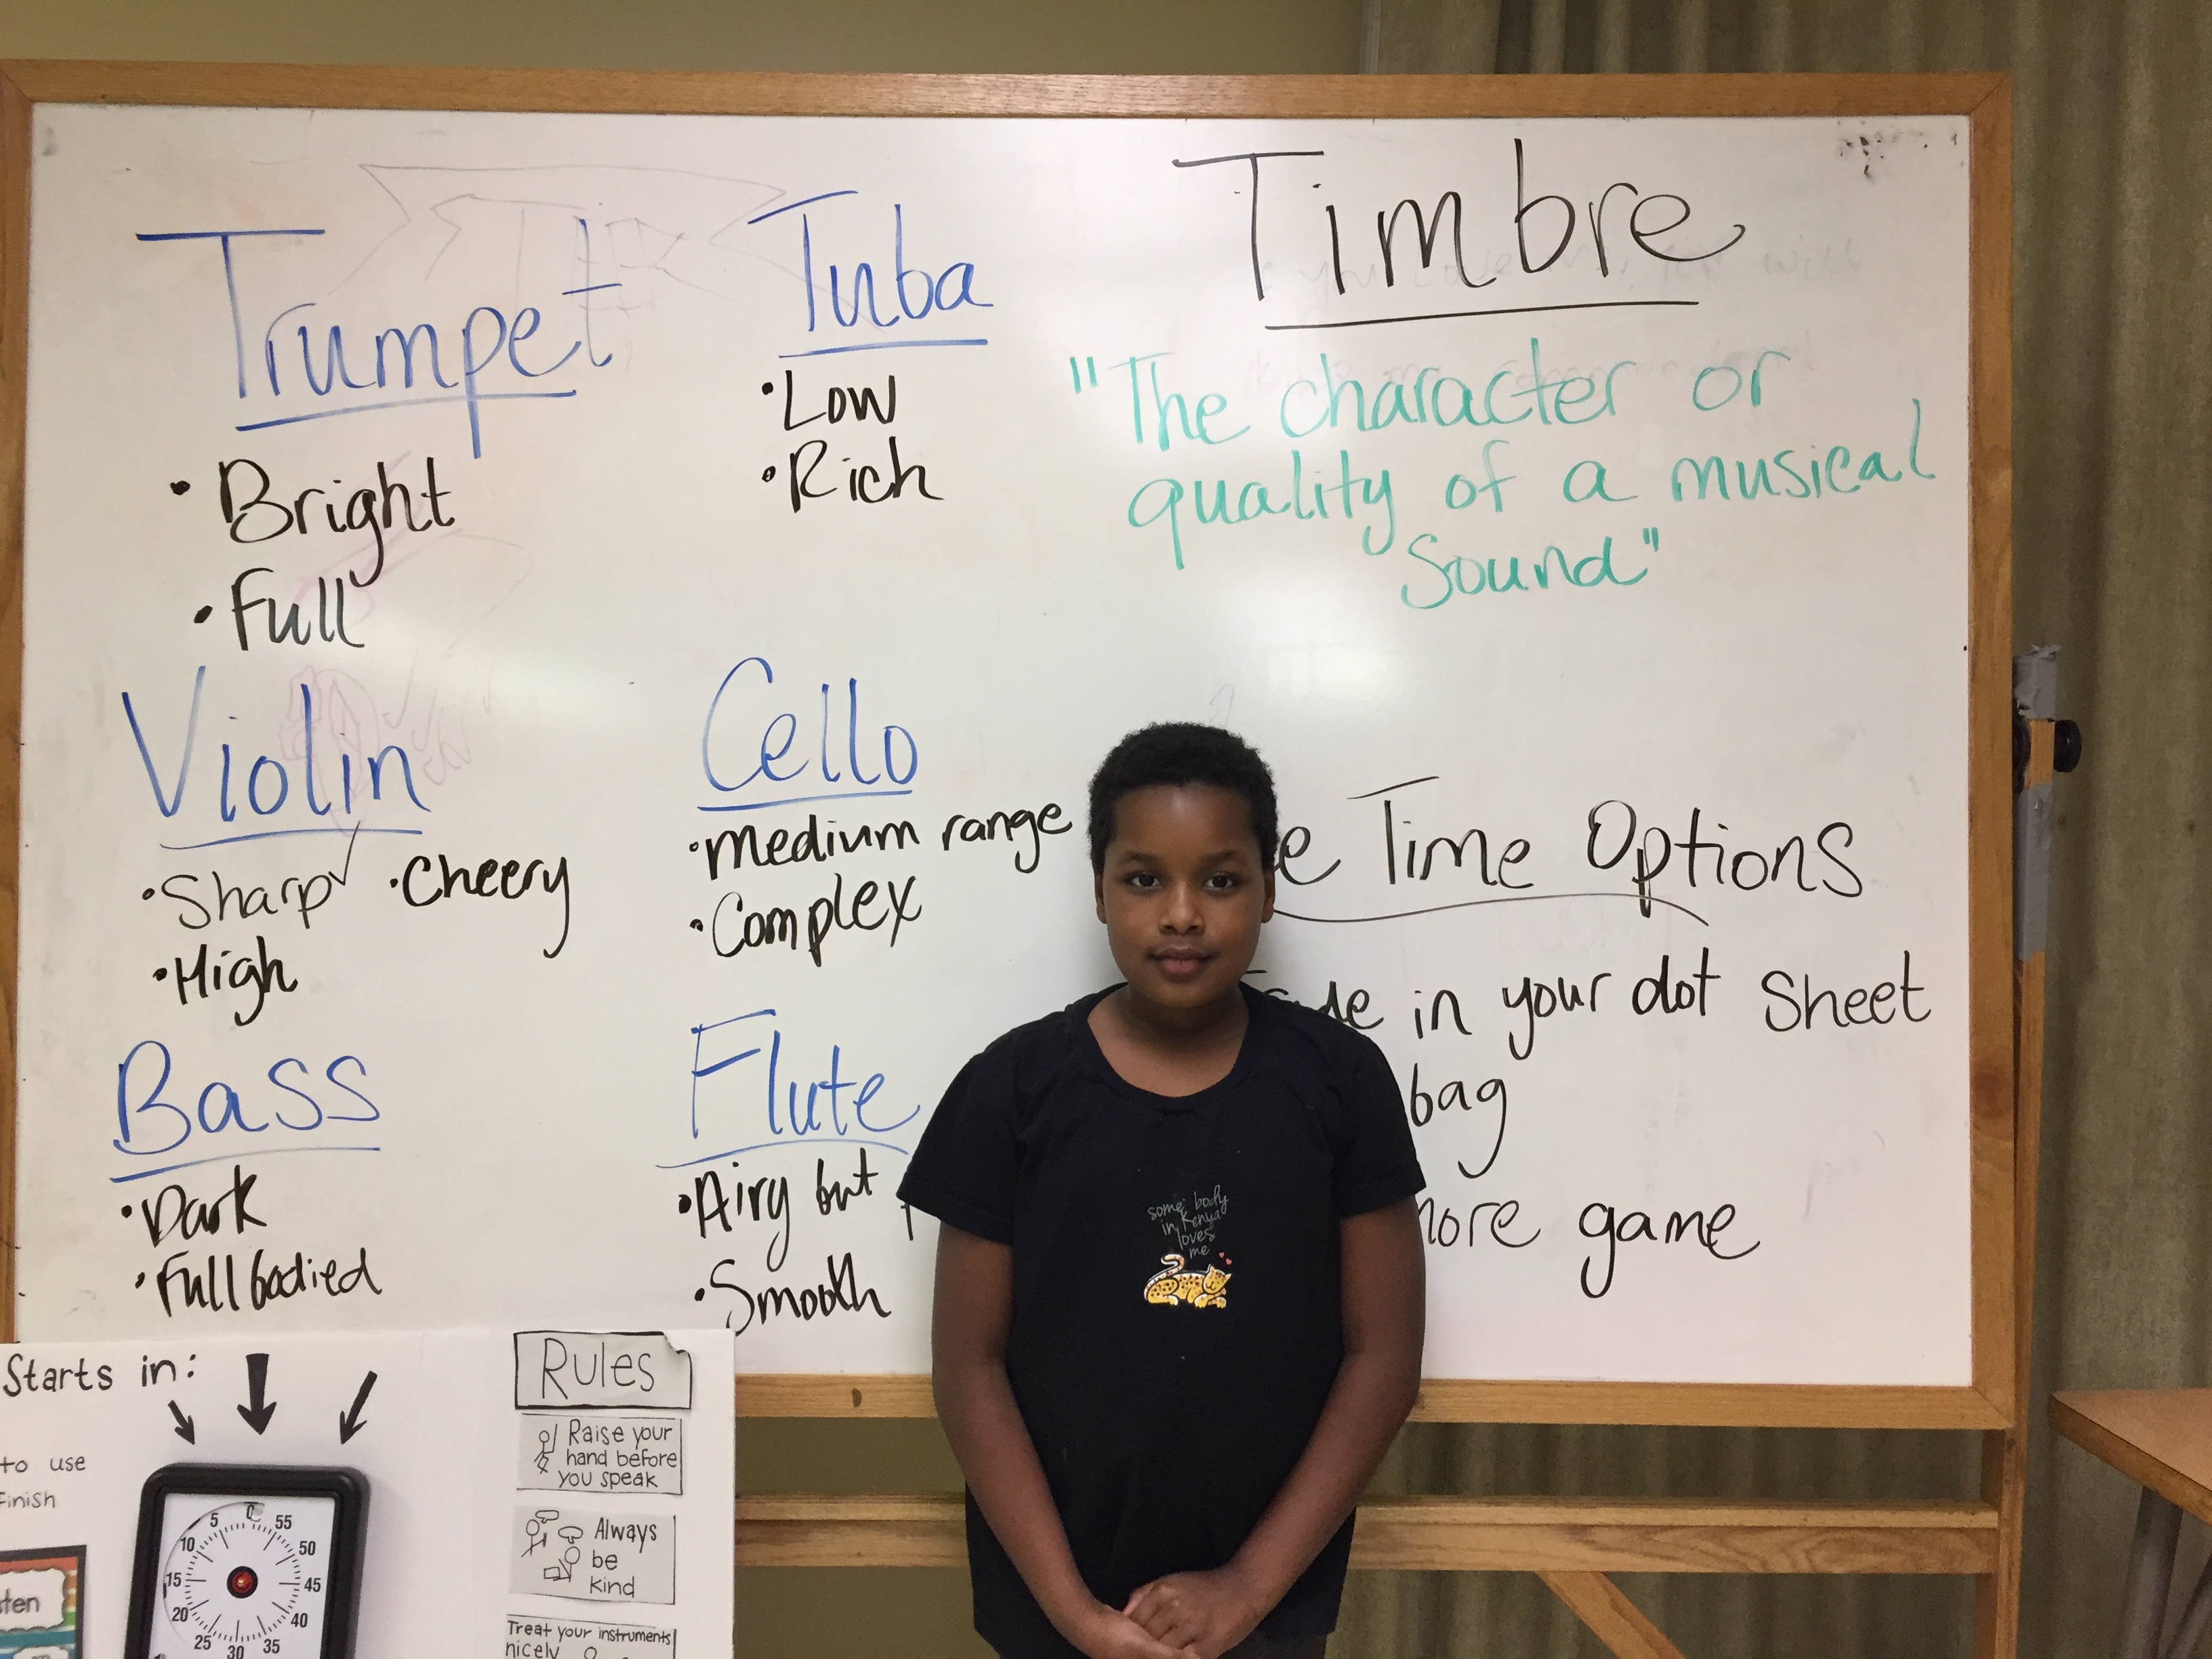 Trumpet
• Bright
• Full
Tuba
• Low
• Rich
Timbre
"The character or
quality of a musical
Sound"
Violin
• Sharp • Cheery
• High
Cello
• Medium range
• Complex
Bass
• Dark
• Full bodied
Flute
• Airy but
• Smooth
Time Options
in your dot Sheet
bag
game
some body
in Kenya
loves
me
Starts in:
to use
Finish
Rules
Raise your
hand before
you speak
Always
be
kind
Treat your instruments
nicely
0
55
50
45
40
35
30
25
20
15
10
5